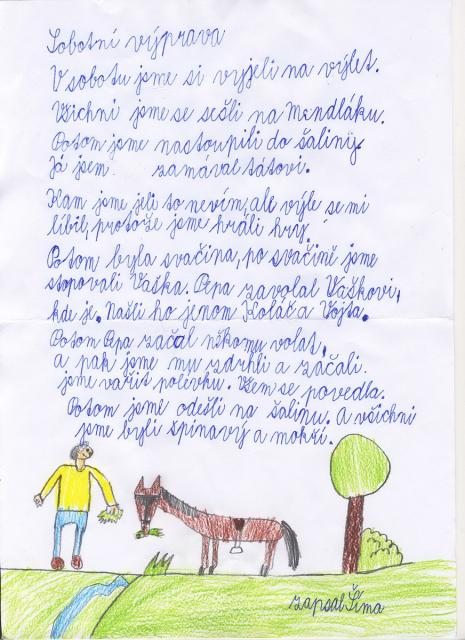 Sobotní výprava
V sobotu jsme si vyjeli na výlet.
Všichni jsme se sešli na Mendláku.
Potom jsme nastoupili do šaliny.
Já jsem zamával tátovi.
Kam jsme jeli to nevím, ale výle se mi
líbil, protože jsme hráli hry.
Potom byla svačina, po svačině jsme
stopovali Vaška. Pepa zavolal Vaškovi,
kde je. Našli ho jenom Koláč a Vojta.
Potom Pepa začal někomu volat,
a pak jsme mu zdrhli a začali
jsme vařit polévku. Všem se povedla.
Potom jsme odešli na šalinu. A všichni
jsme byli špinavý a mokří.
zapsal Šíma